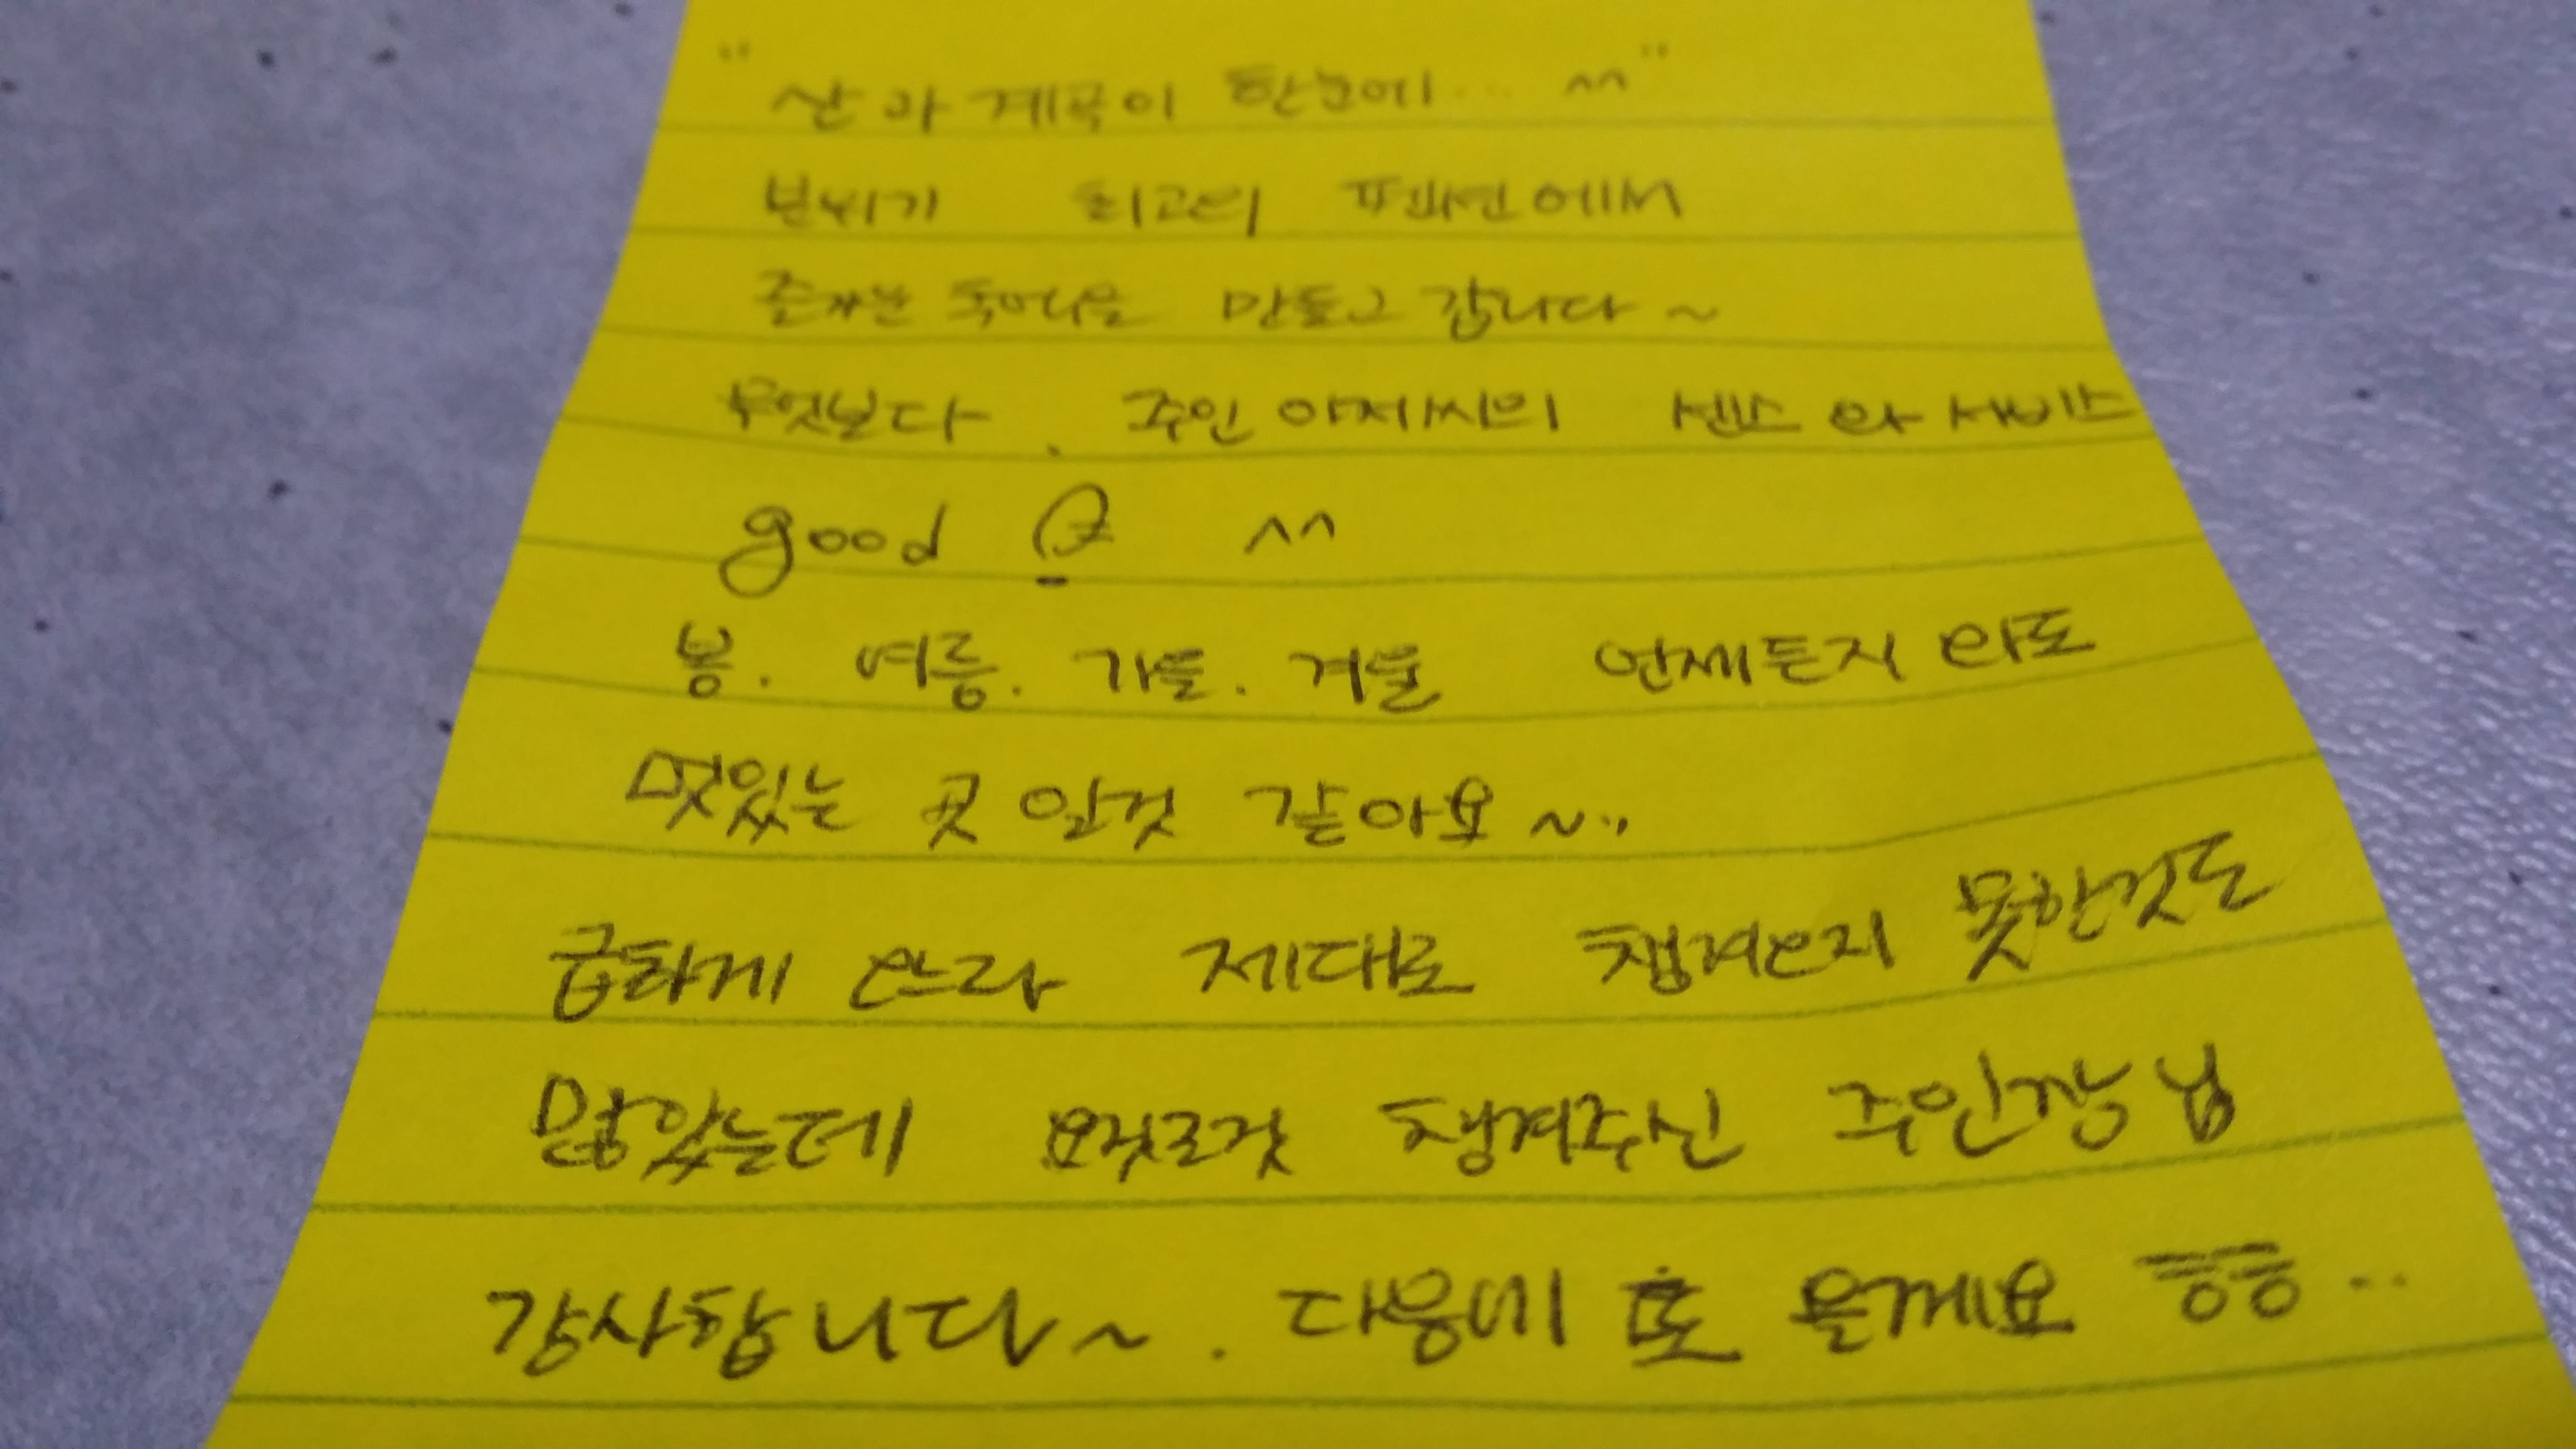 "산과 계곡이 한눈에... ^^"
분위기 최고의 펜션에서
즐거운 추억을 만들고 갑니다~
무엇보다. 주인아저씨의 센스와 서비스
good ^^
봄. 여름. 가을. 겨울 언제든지 와도
멋있는 곳 일것 같아요~..
급하게 오느라 제대로 챙겨오지 못한것도
많았는데 요것조것 챙겨주신 주인장님
감사합니다~. 다음에 또 올게요 ㅎㅎ..